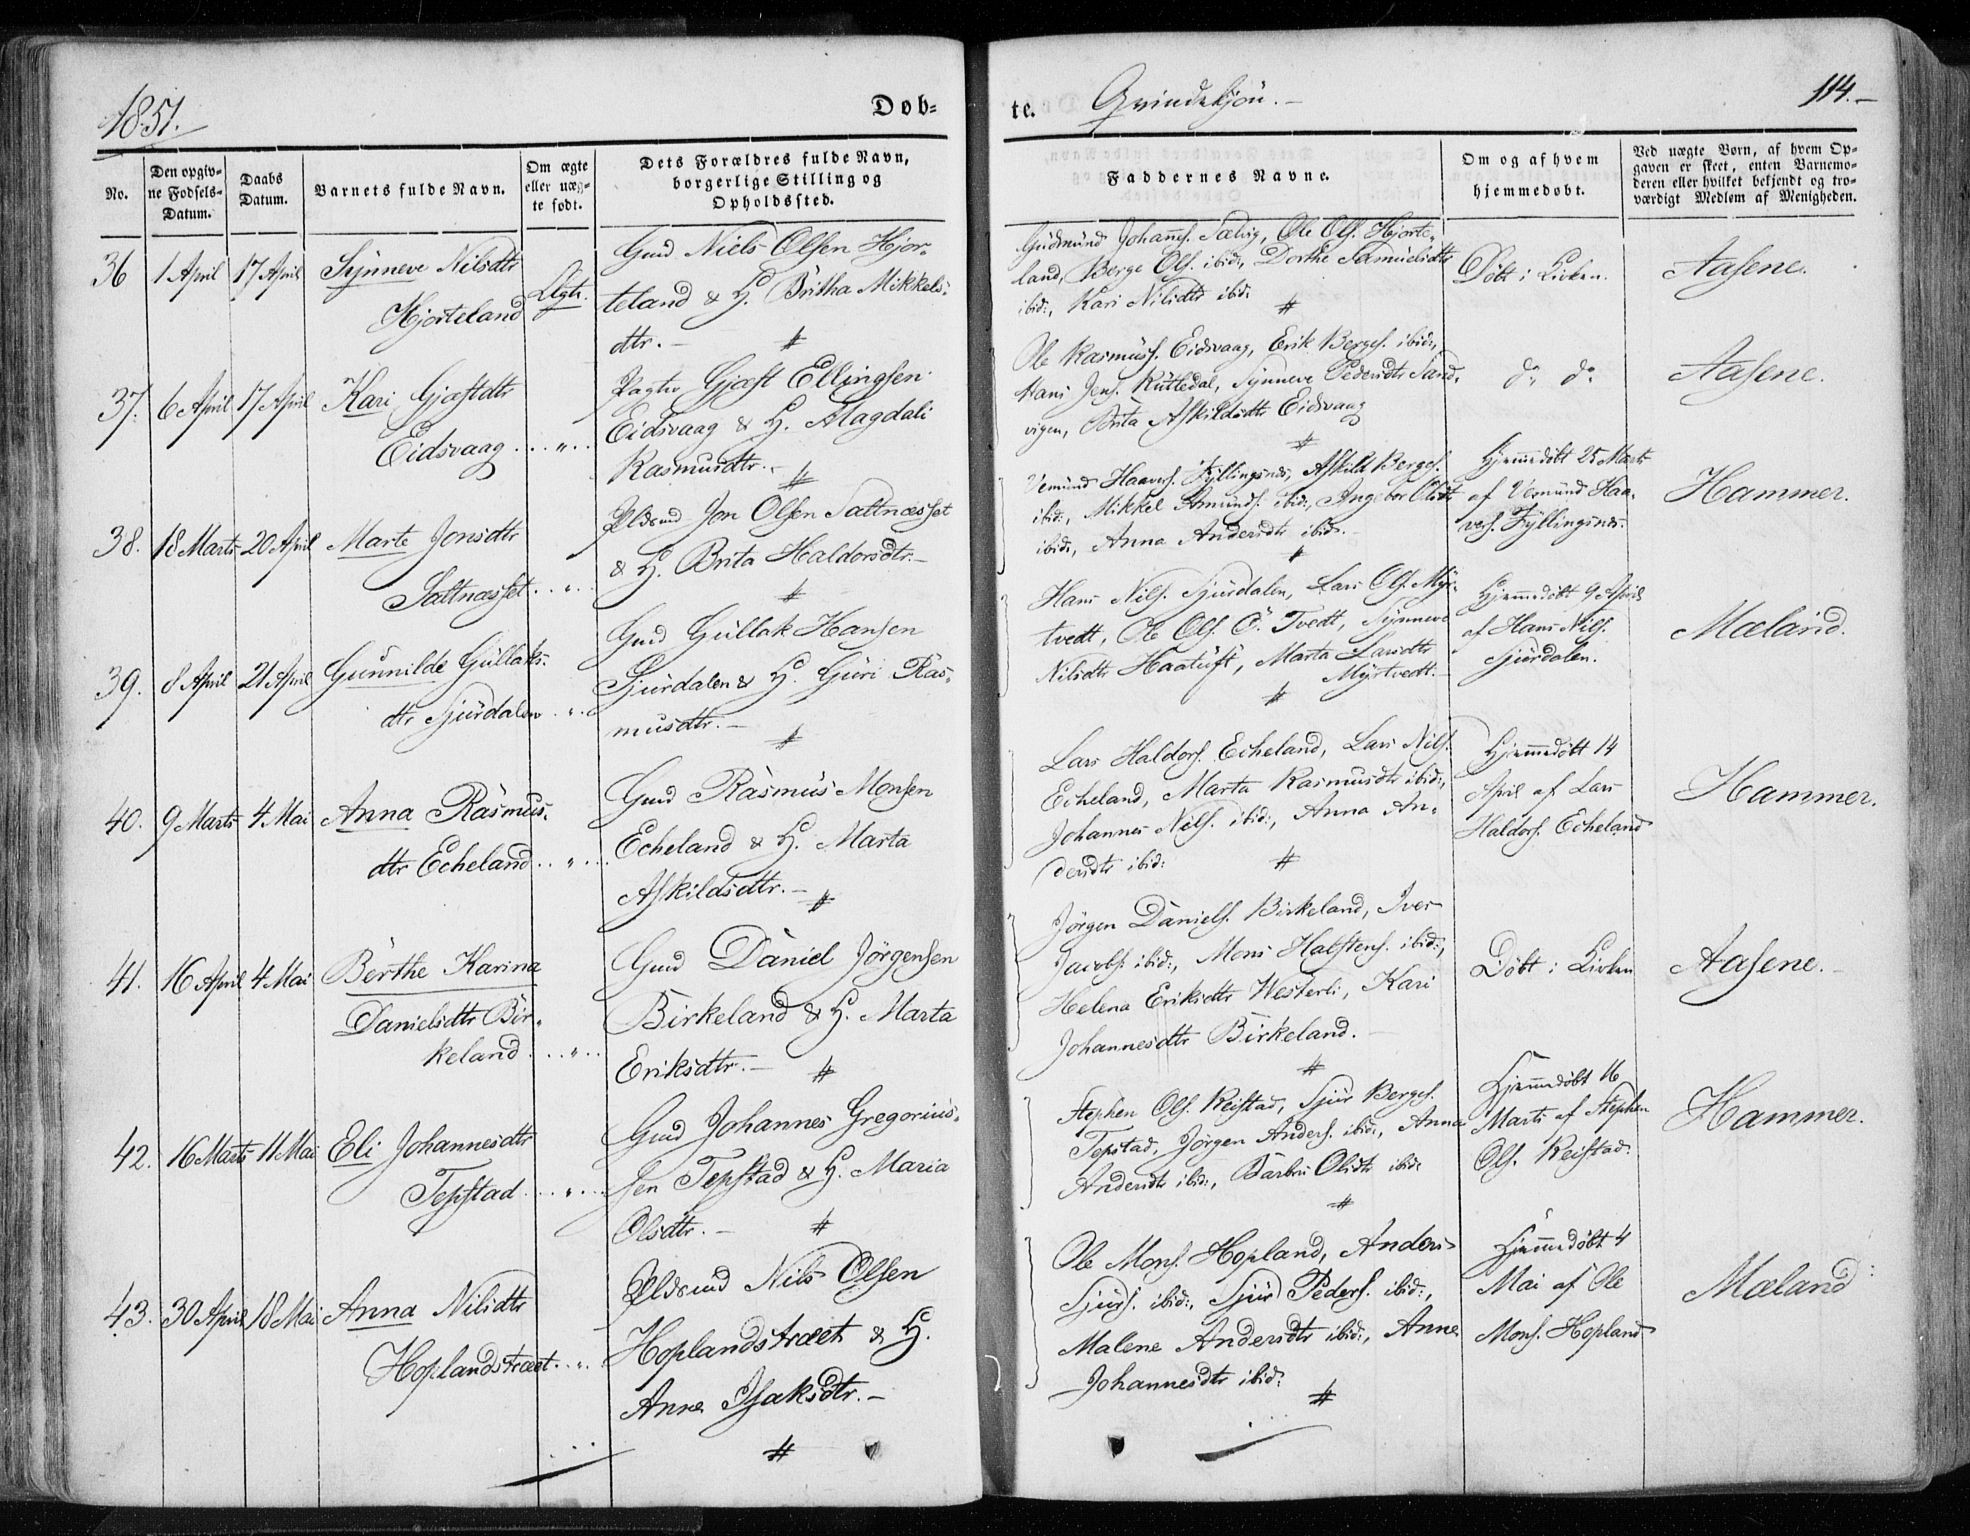 1851.
Døb-
te. Qvindekjön.
114.
No.
Den opgiv-
ne Fødsels-
Datum.
Daabs
Datum.
Barnets fulde Navn.
Om ægte
eller uæg-
te født.
Dets Forældres fulde Navn,
borgerlige Stilling og
Opholdssted.
Faddernes Navne.
Om og af hvem
hjemmedøbt.
Ved uægte Børn, af hvem Op-
gaven er skeet, enten Barnemo-
deren eller hvilket bekjendt og tro-
værdigt Medlem af Menigheden.
36 1 April 17 April Synneve Nilsdtr
Hjorteland
Ægte.
Gmd Niels Olsen Hjor-
teland & H. Britha Mikkels-
dtr. #
Gudmund Johans. Sælvig, Ole Ols. Hjorte-
land, Berge Ols. ibid:, Dorthe Samuelsdtr
ibid:, Kari Nilsdtr ibid: #
Döbt i Kirken.
Aasene.
37. 6 April 17 April Kari Gjæstdtr
Eidsvaag . . . „ . .
Pagter Gjæst Ellingsen
Eidsvaag & H. Magdali
Rasmusdtr. #
Ole Rasmuss. Eidsvaag, Erik Berges. ibid:,
Hans Jens. Rutledal, Synneve Pedersdtr Sand-
vigen, Brita Askildsdtr Eidsvaag #
do do
Aasene.
38. 18 Marts 20 April Marte Jonsdtr
Sættnæsset . . „ . .
Pldsmd Jon Olsen Sættnæsset
& H. Brita Haldorsdtr. #
Vemund Haavers. Fyllingsnæs, Askild Berges.
ibid:, Mikkel Amunds. ibid:, Angebor Olsdtr
ibid:, Anna Andersdtr ibid:. #
Hjemmedöbt 25 Marts
af Vemund Haa-
vers. Fyllingsnæs.
Hammer.
39. 8 April 21 April Gunnilde Gullaks-
dtr Sjurdalen . „ .
Gmd Gullak Hansen
Sjurdalen & H. Guri Ras-
musdtr. #
Hans Nils. Sjurdalen, Lars Ols. Myr-
tvedt, Ole Ols. Ö. Tvedt, Synneve
Nilsdtr Haatuft, Marta Larsdtr
Myrtvedt. #
Hjemmedöbt 9 April
af Hans Nils.
Sjurdalen.
Mæland.
40. 9 Marts 4 Mai Anna Rasmus-
dtr Echeland . . „ . .
Gmd Rasmus Monsen
Echeland & H. Marta
Askildsdtr. #
Lars Haldors. Echeland, Lars Nils.
Echeland, Marta Rasmusdtr ibid:,
Johannes Nils. ibid:, Anna An-
dersdtr ibid: #
Hjemmedöbt 14
April af Lars
Haldors. Echeland
Hammer.
41. 16 April 4 Mai Berthe Karina
Danielsdtr Bir-
keland . . . „ . .
Gmd Daniel Jörgensen
Birkeland & H. Marta
Eriksdtr. #
Jörgen Daniels. Birkeland, Iver
Jacobs. ibid:, Mons Halstens. ibid:,
Helena Eriksdtr Westerli, Kari
Johannesdtr Birkeland. #
Döbt i Kirken
Aasene.
42. 16 Marts 11 Mai Eli Johannesdtr
Tepstad . . . „ . .
Gmd Johannes Gregorius-
sen Tepstad & H. Maria
Olsdtr. #
Stephen Ols. Keistad, Sjur Berges.
Tepstad, Jörgen Anders. ibid:, Anna
Andersdtr ibid:, Barbru Olsdtr ibid: #
Hjemmedöbt 16
Marts af Stephen
Ols. Keistad.
Hammer.
43. 30 April 18 Mai Anna Nilsdtr
Hoplandstræet . . „ .
Pldsmd Nils Olsen
Hoplandstræet & H.
Anne Isaksdtr. #
Ole Mons. Hopland, Anders
Sjurs. ibid:, Sjur Peders. ibid:,
Malene Andersdtr ibid:, Anne
Johannesdtr ibid: #
Hjemmedöbt 4
Mai af Ole
Mons. Hopland
Mæland